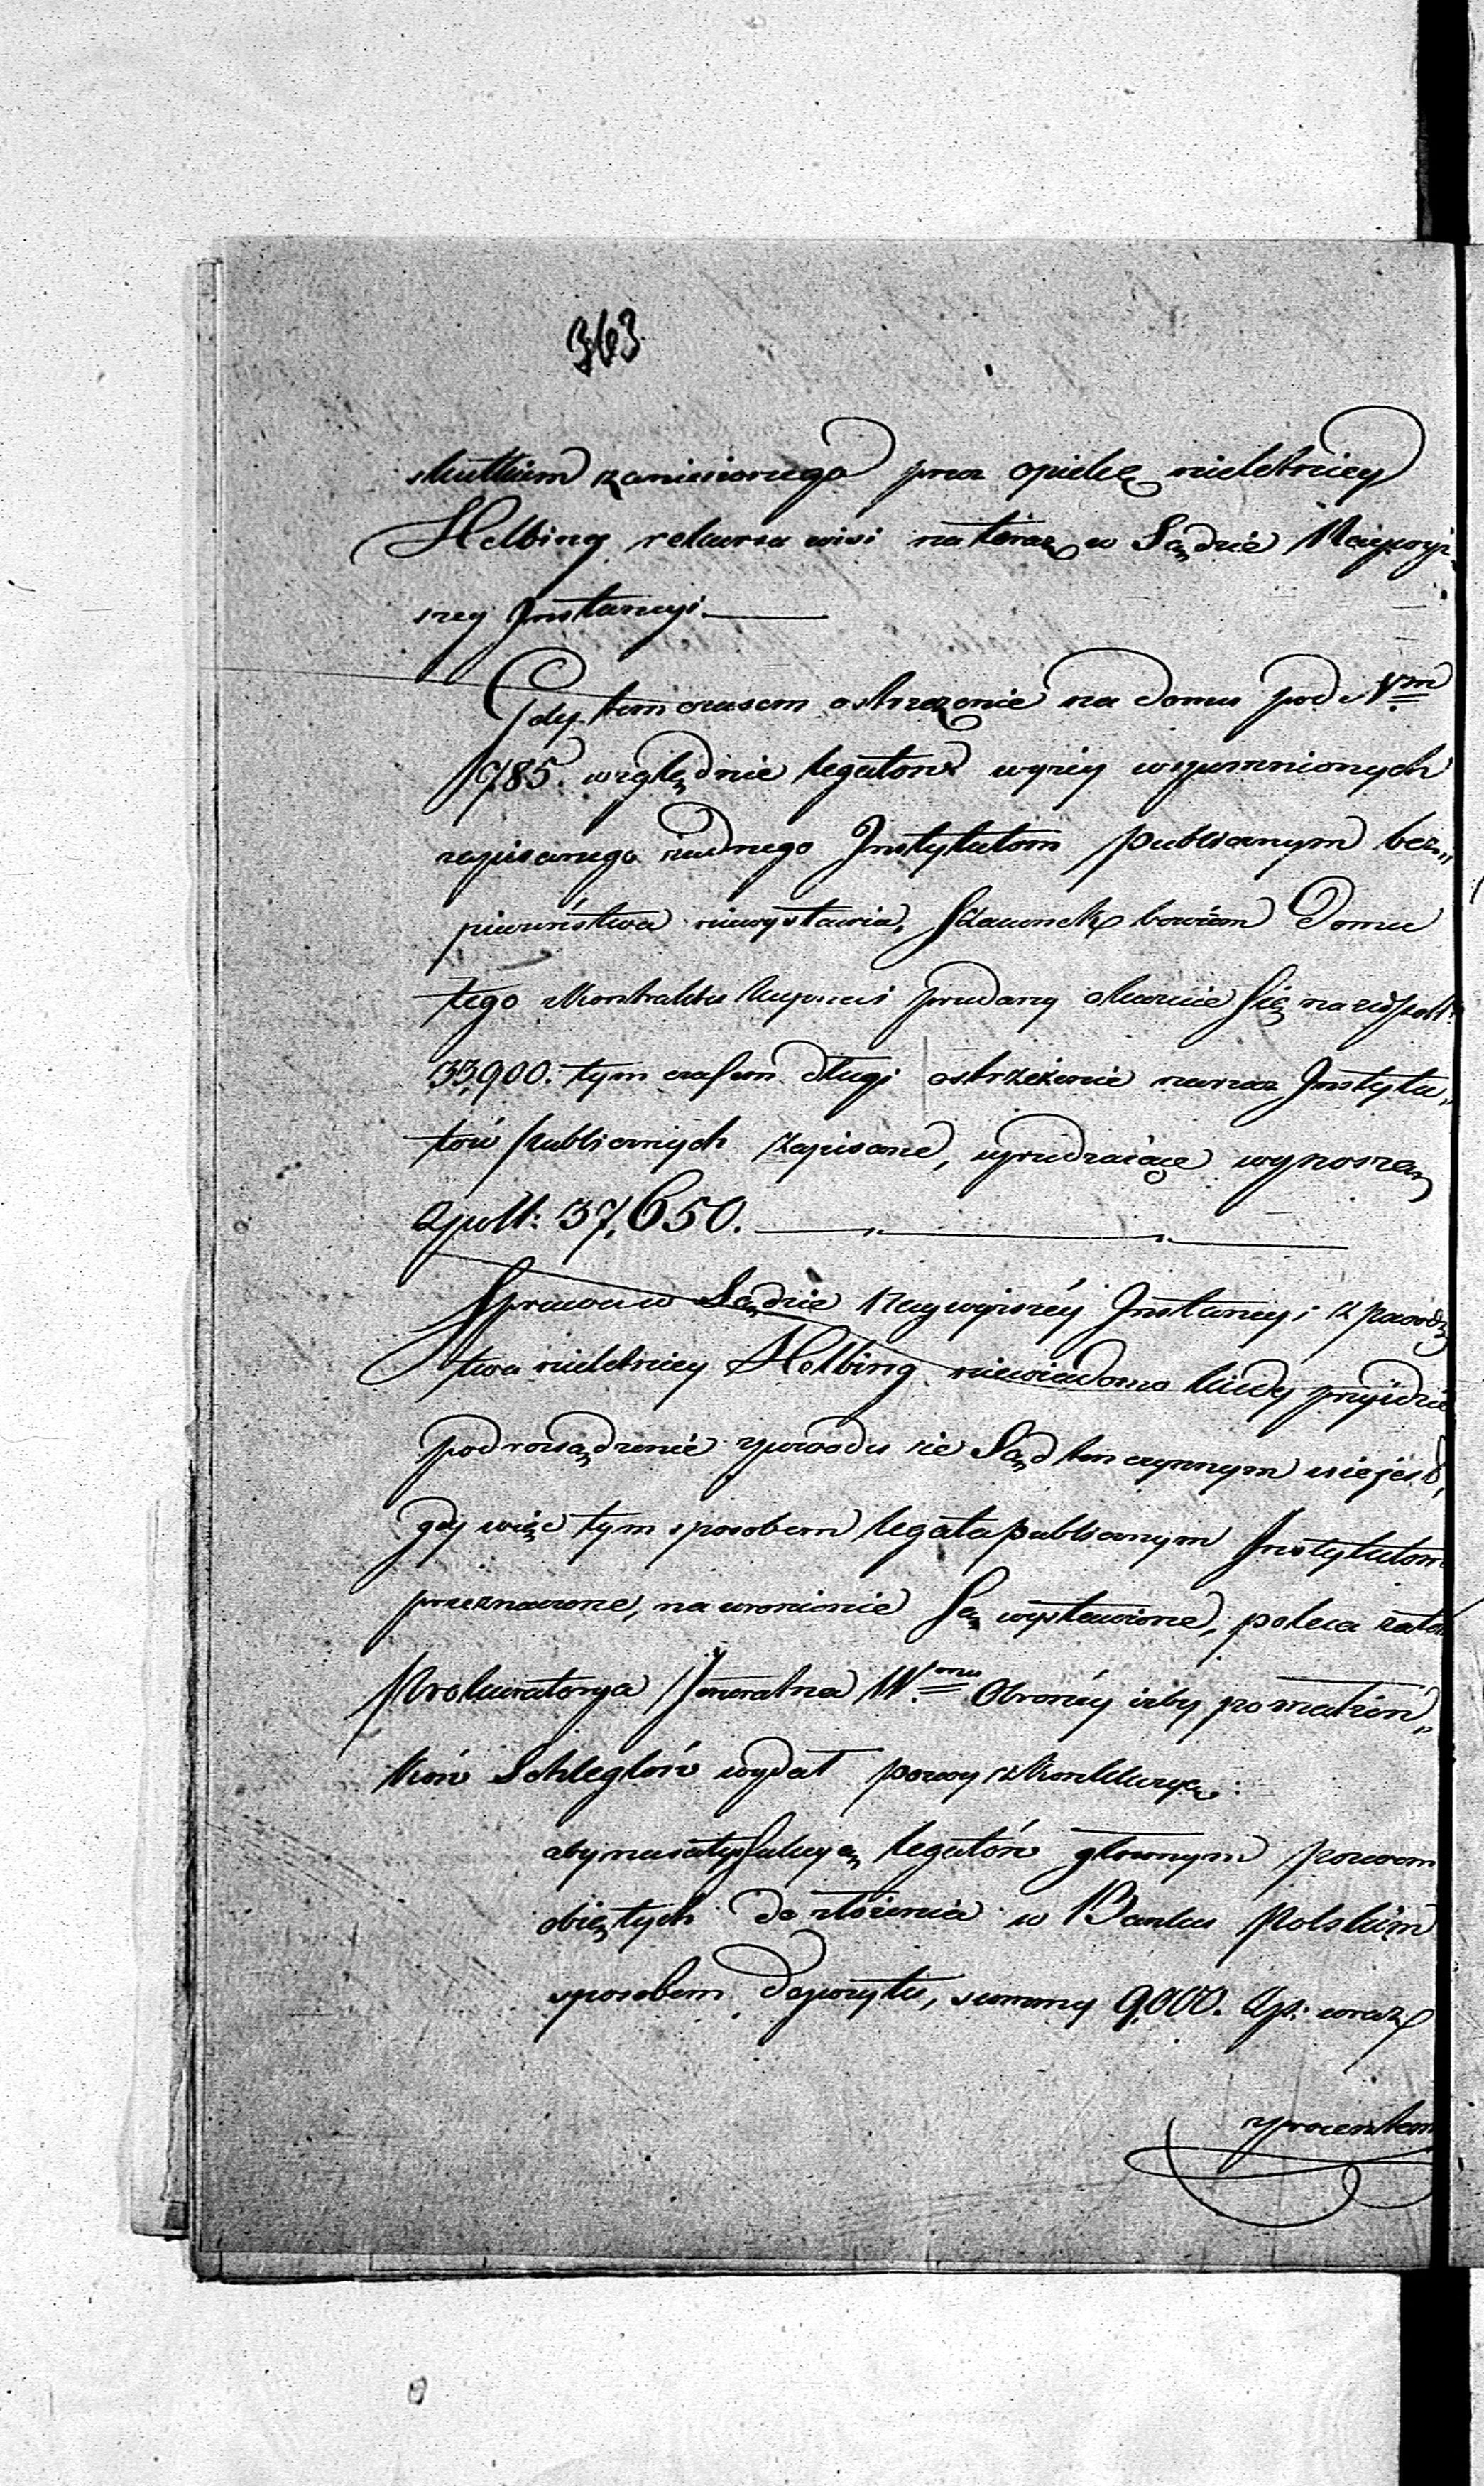 363
skutkiem zaniesionego przez opiekę nieletniey
Helbing rekursu wisi na teraz w Sądzie Naywyż
szey Instancyi.
Gdy tem czasem ostrzeżenie na domu pod Nrm
1785. względnie legatow wyżey wspomnionych
zapisanego żadnego Instytutom publicznym bez„
pieczeństwa niewystawia, Szacunek bowiem Domu
tego z Kontraktu kupna i przedarzy okazuie się na
33,900. tym czasem długi i ostrzeżenie na rzecz Instytu„
tów publicznych zapisane, uprzedzaiące wynoszą
Zpoll: 37,650.
Sprawa w Sądzie Naywyższéy Instancyi z powodz
twa nieletniey Helbing niewiadomo kiedy przyidzie
pod rozsądzenie zpowodu że Sąd ten czynnym nie jest,
gdy więc tym sposobem legata publicznym Instytutom
przeznaczone, na uronienie są wystawione, poleca zatem
Prokuratorya Jeneralna W.mu Obrońcy iżby po małżon„
ków Schleglów wydał pozwy z Konkluzyą:
aby na satysfakcyą legatów głownym pozwem
obiętych do złożenia w Banku Polskim
sposobem depozytu, summy 9,000. Zp: wraz
zprocentem